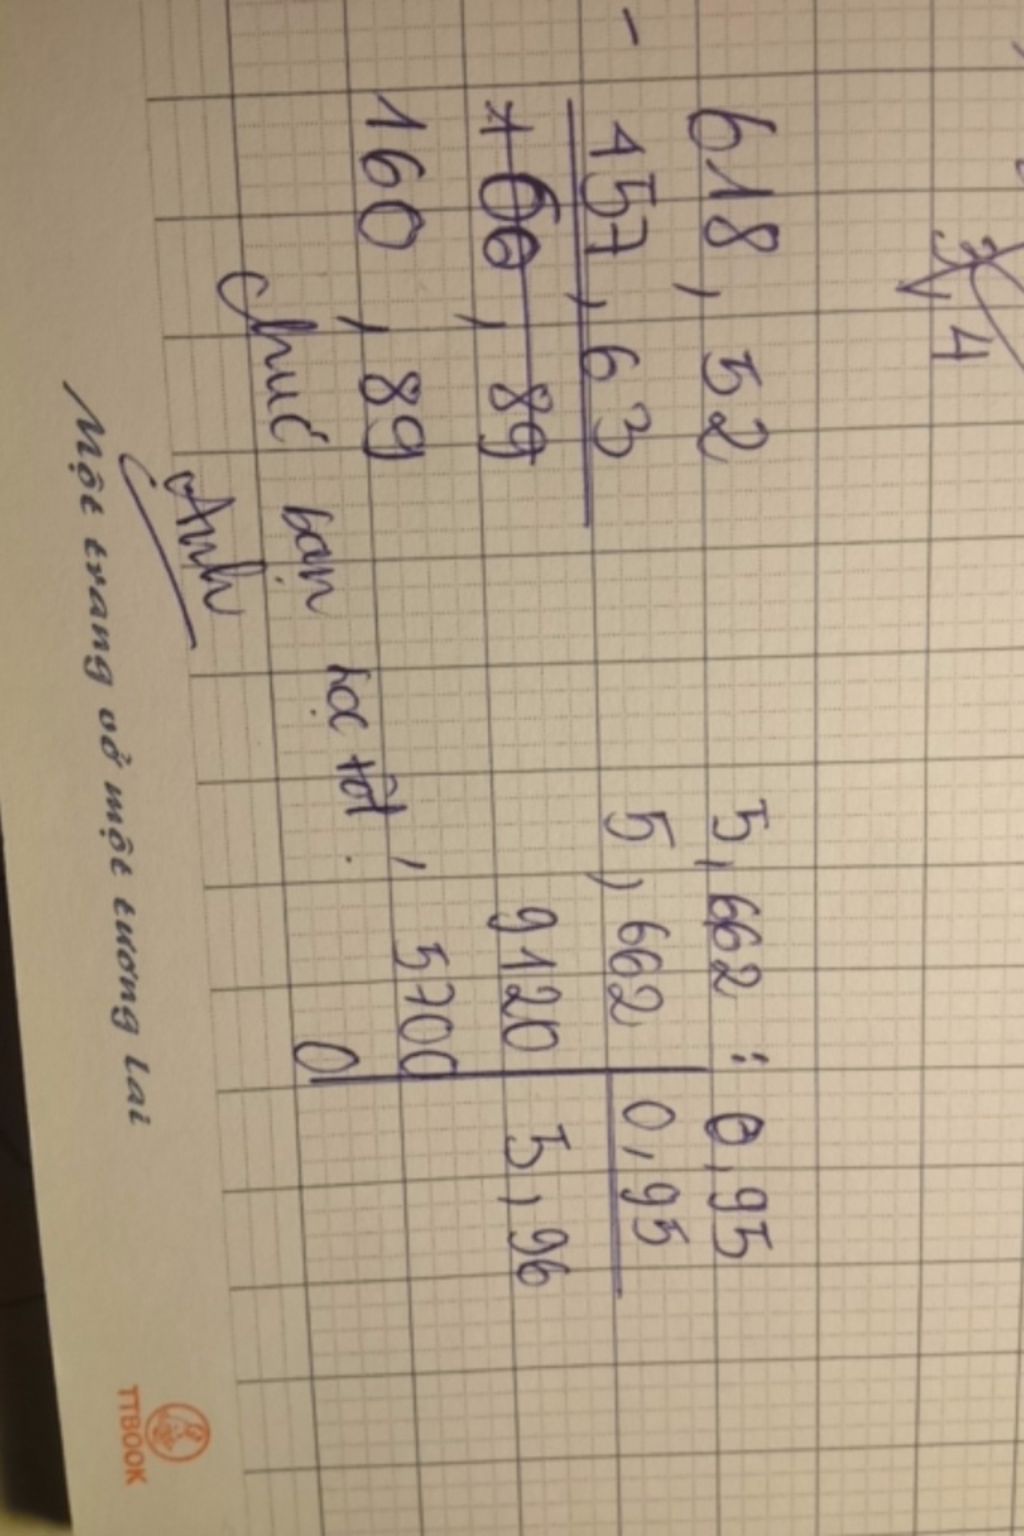 4
618,52
-
157,63
160,89
160,89
5,662 : 0,95
5,662 0,95
9120 5,96
5700
0
Chúc bạn học tốt.
Anh
Một trang vở một tương lai
TTBOOK